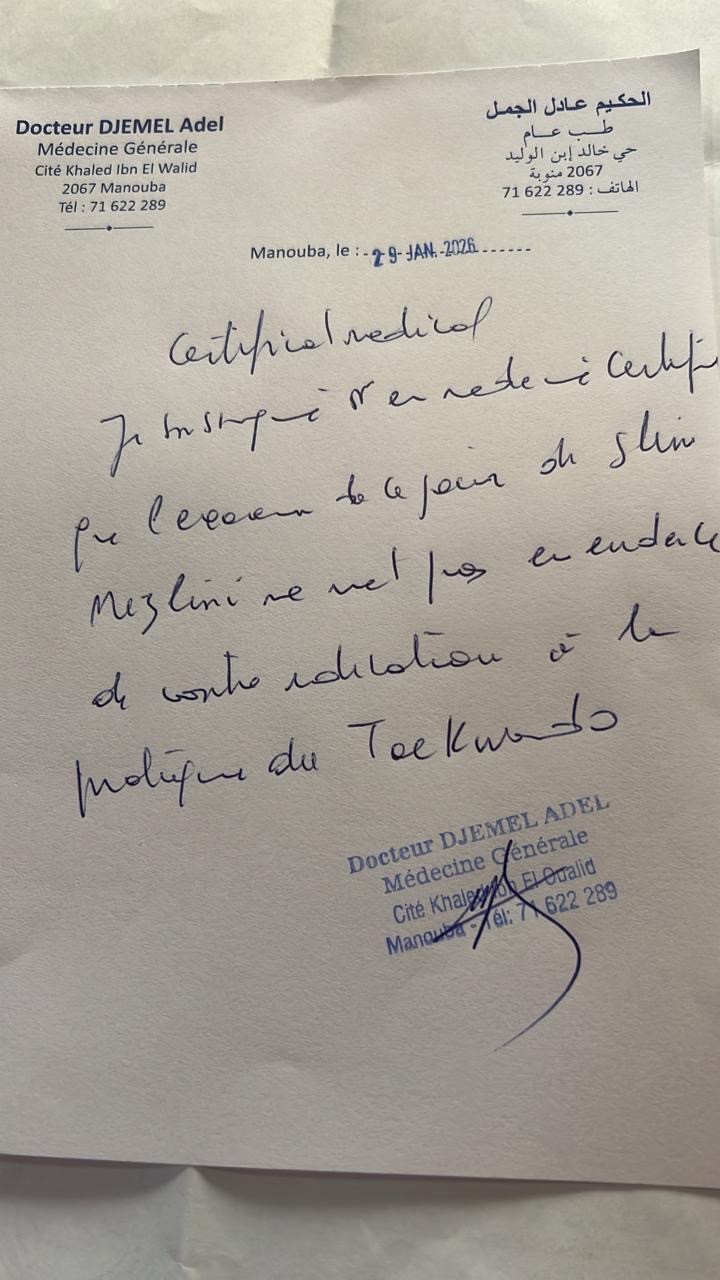 Docteur DJEMEL Adel
Médecine Générale
Cité Khaled Ibn El Walid
2067 Manouba
Tél : 71 622 289
الحكيم عادل الجمل
طب عام
حي خالد إبن الوليد
2067 منوبة
الهاتف : 289 622 71
Manouba, le : 29 JAN. 2026
Certificat medical
Je soussigné Dr en medecine certifi
que l'examen de ce jour de Slim
Mezlini ne met pas en evidence
de contre indication à la
pratique du Taekwondo
Docteur DJEMEL ADEL
Médecine Générale
Cité Khaled Ibn El Oualid
Manouba - Tél: 71 622 289